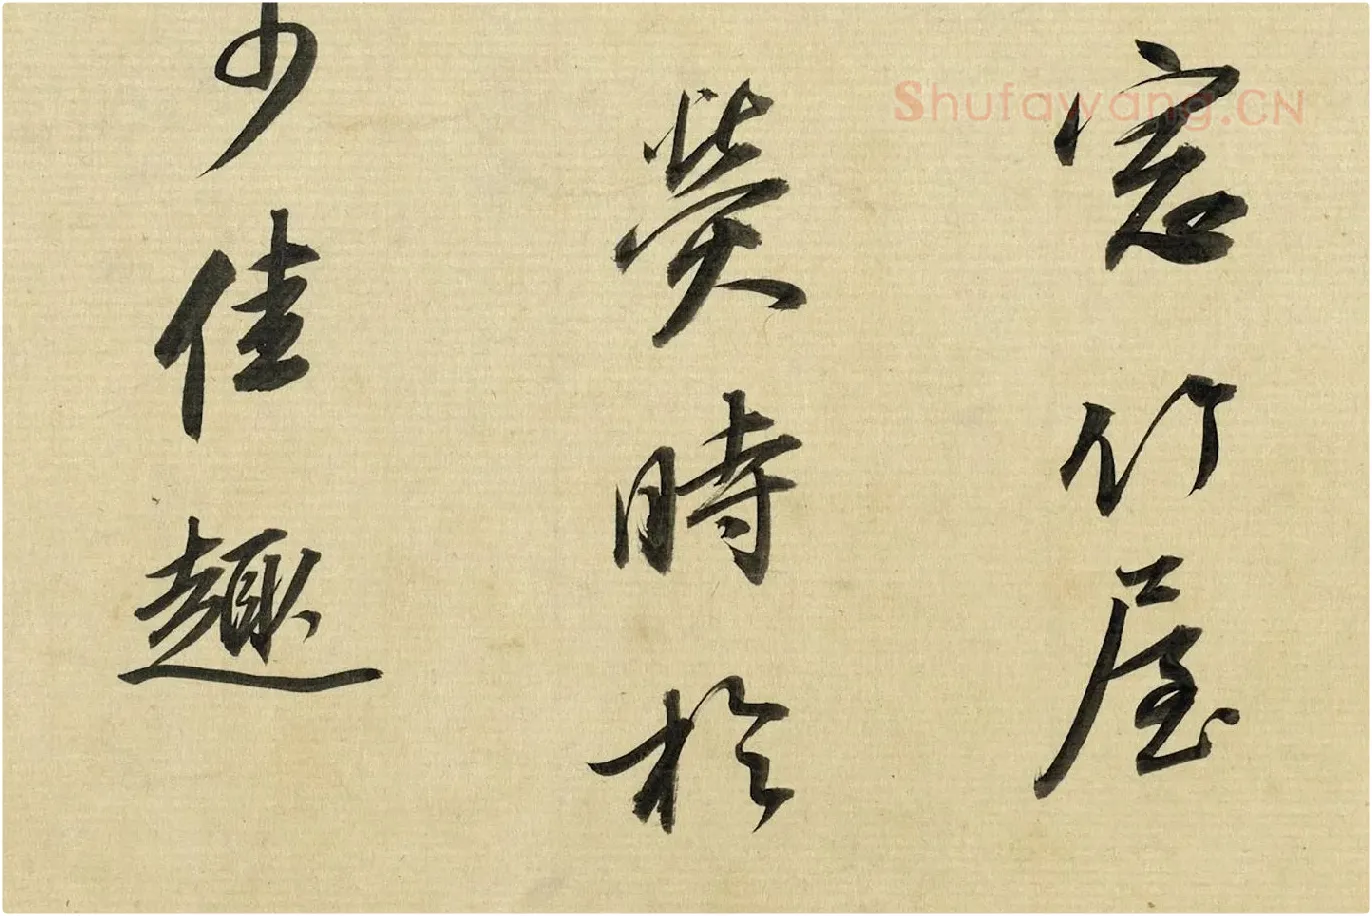 Shufawang.CN
窓竹屋
熒時於
少佳趣